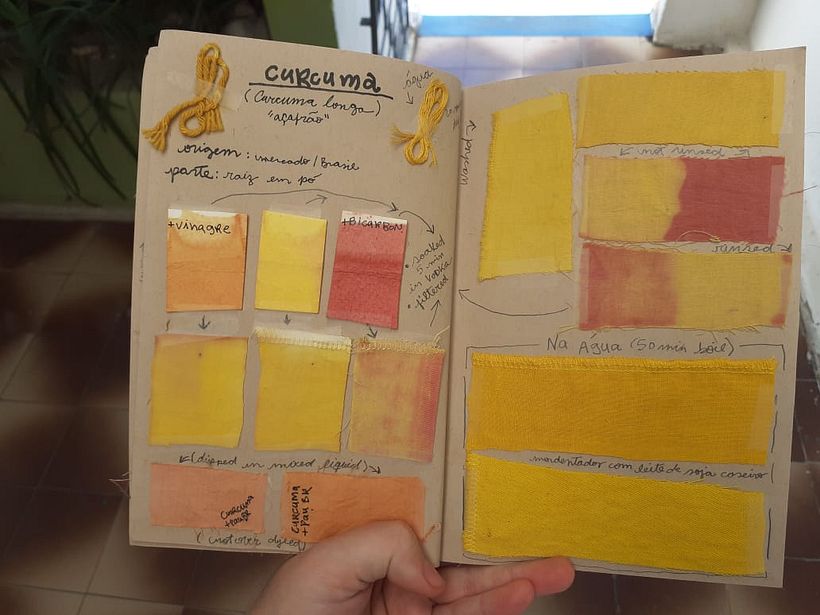 CURCUMA
(Curcuma longa)
"açafrão"
água
origem: mercado/Brasil
parte: raiz em pó
+vinagre
+BICARBON
• soaked
5 min
in vodka
• filtered
(dipped in mixed liquid)
CURCUMA
+PAU BR
CURCUMA
+PAU BR
(not over dyed)
washed
not rinsed
rinsed
Na Água (50 min boil)
mordentador com leite de soja caseiro